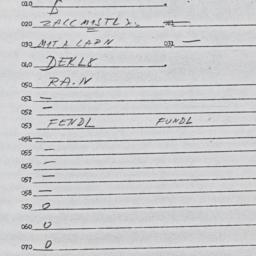 010
020 ZACCMISTLX.
030 MAT X LAPN 031 —
040 DEKLX
050 RA.N
051 —
052 —
053 FENDL FUNDL
054
055 —
056 —
057 —
058 —
059 0
060 0
070 0